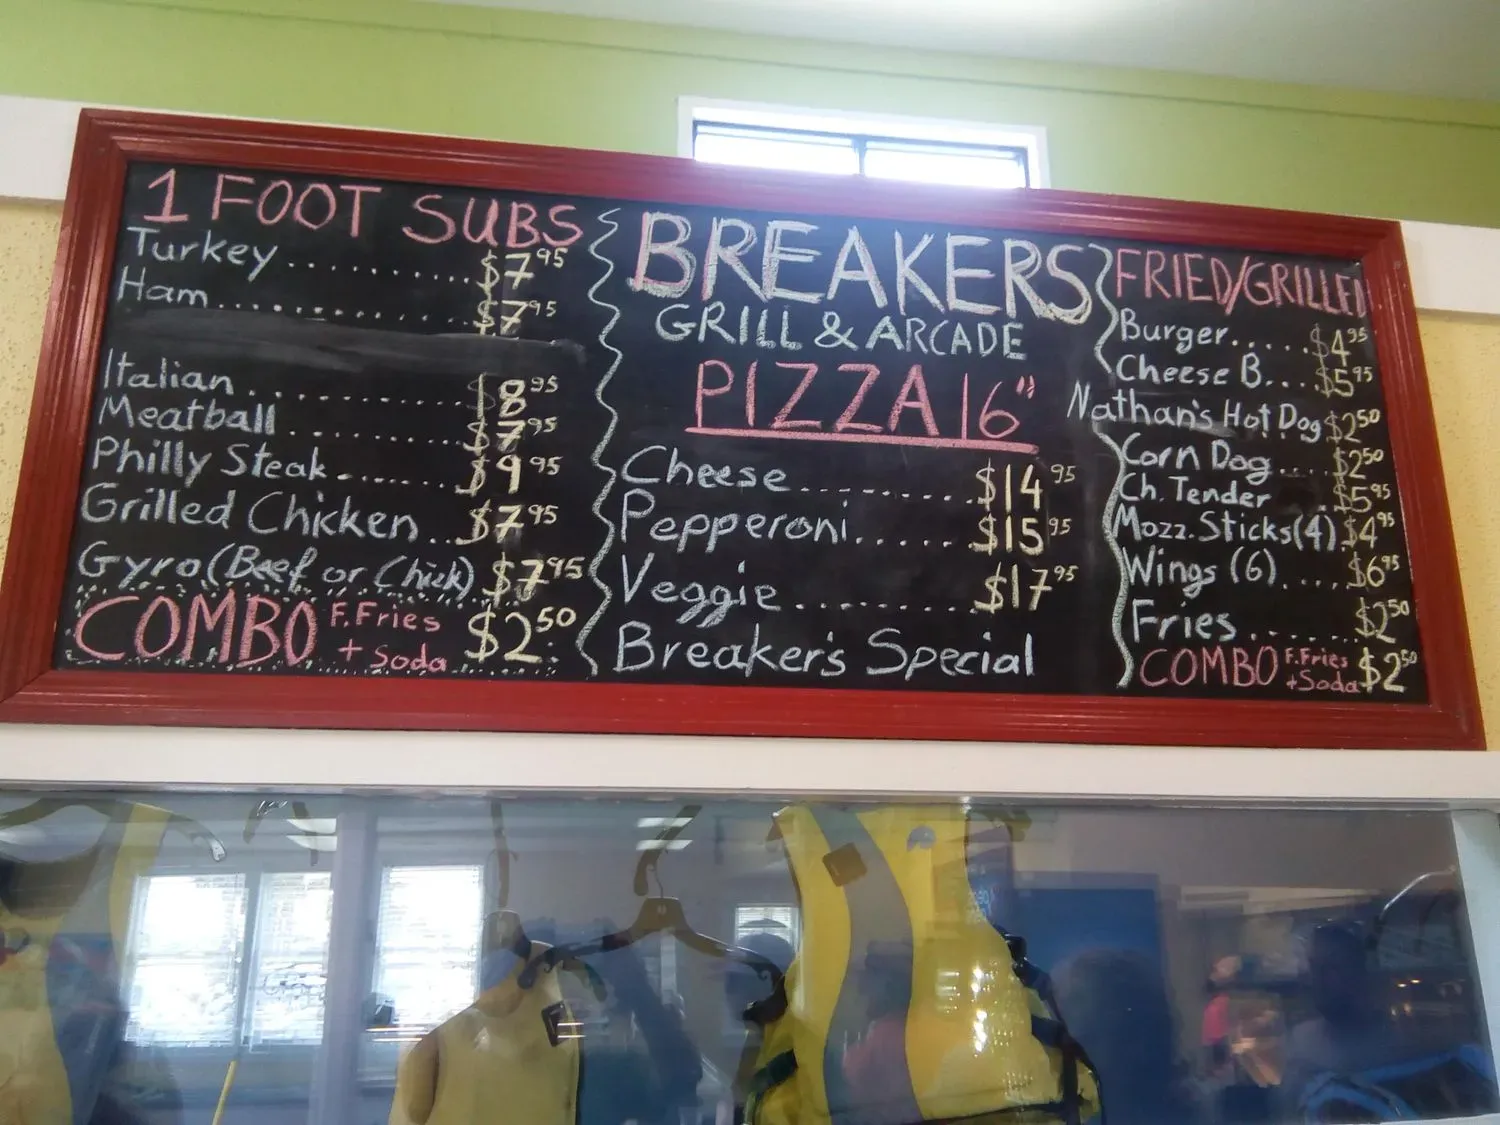 1 FOOT SUBS
Turkey ............ $7.95
Ham ................ $7.95
Italian ............. $8.95
Meatball ........... $7.95
Philly Steak ........ $9.95
Grilled Chicken .. $7.95
Gyro (Beef or Chick) $7.95
COMBO F.Fries + Soda $2.50
BREAKERS
GRILL & ARCADE
PIZZA 16"
Cheese ............ $14.95
Pepperoni ...... $15.95
Veggie ........... $17.95
Breaker's Special
FRIED/GRILLED
Burger ..... $4.95
Cheese B.... $5.95
Nathan's Hot Dog $2.50
Corn Dog .... $2.50
Ch. Tender .. $5.95
Mozz. Sticks (4). $4.95
Wings (6) .... $6.95
Fries ....... $2.50
COMBO F.Fries + Soda $2.50